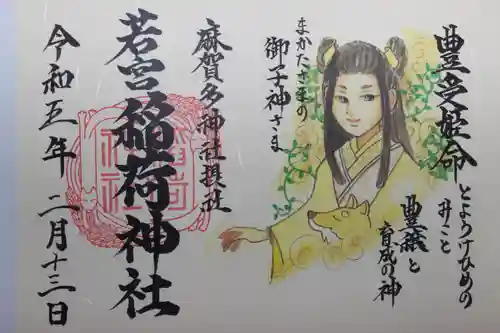 豊受姫命
とようけひめの
みこと
豊穣と
育成の神
まかたさまの
御子神さま
麻賀多神社摂社
若宮稲荷神社
令和五年二月十三日